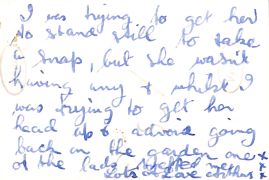 I was trying to get her
to stand still to take
a snap, but she wasn't
having any & whilst I
was trying to get her
head up & advoid going
back in the garden one
of the lads me x
Lots of Love x